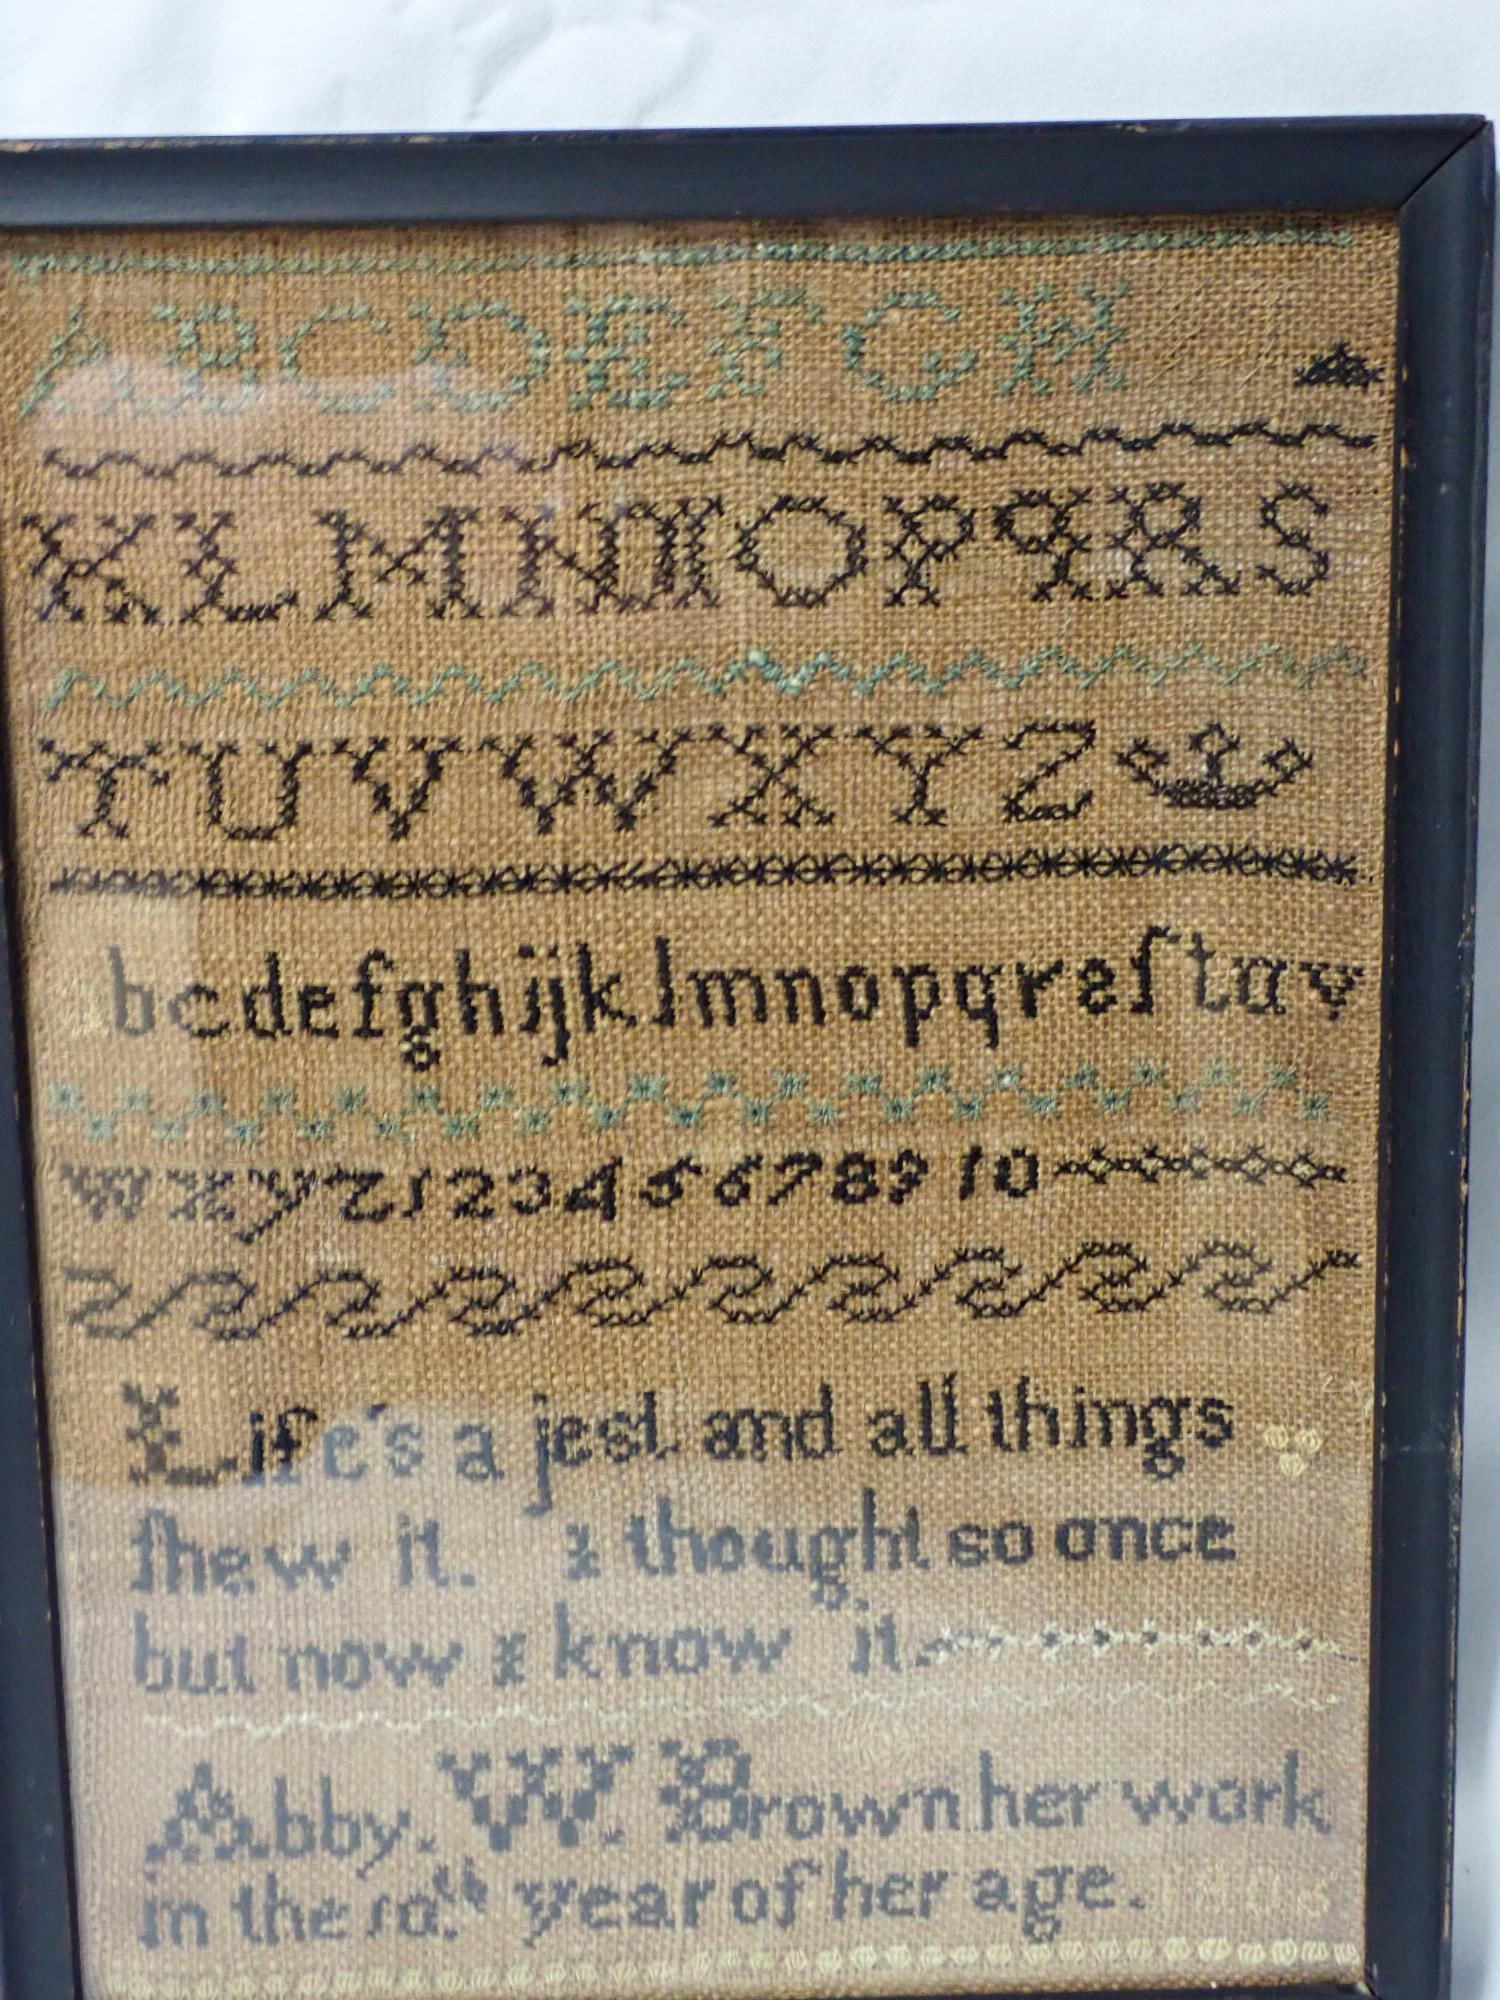 ABCDEFGH
KLMNOPQRS
TUVWXYZ
bcdefghijklmnopqrsſtuv
wxyz12345678910
Life's a jest and all things
ſhew it. I thought so once
but now I know it.
Abby. W. Brown her work
in the 10.th year of her age.